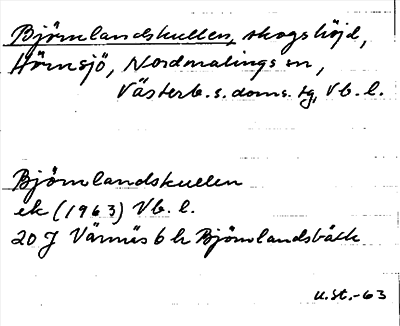 Björnlandskullen, skogshöjd,
Hörnsjö, Nordmalings sn,
Västerb. s. doms. tg, Vb. l.
Björnlandskullen
ek (1963) Vb. l.
20 J Värnäs 6 h Björnlandsbäck
U.St.-63